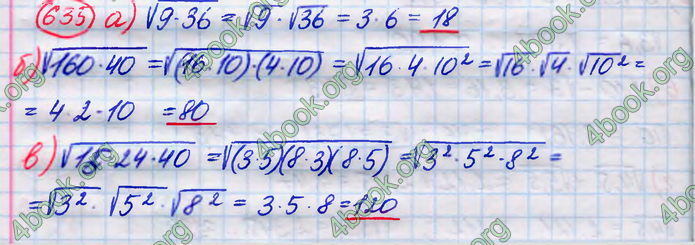 635 а) √9·36 = √9 · √36 = 3·6 = 18
б) √160·40 = √(16·10)·(4·10) = √16·4·10² = √16·√4·√10² =
= 4·2·10 = 80
в) √15·24·40 = √(3·5)(8·3)(8·5) = √3²·5²·8² =
= √3²·√5²·√8² = 3·5·8 = 120
4book.org